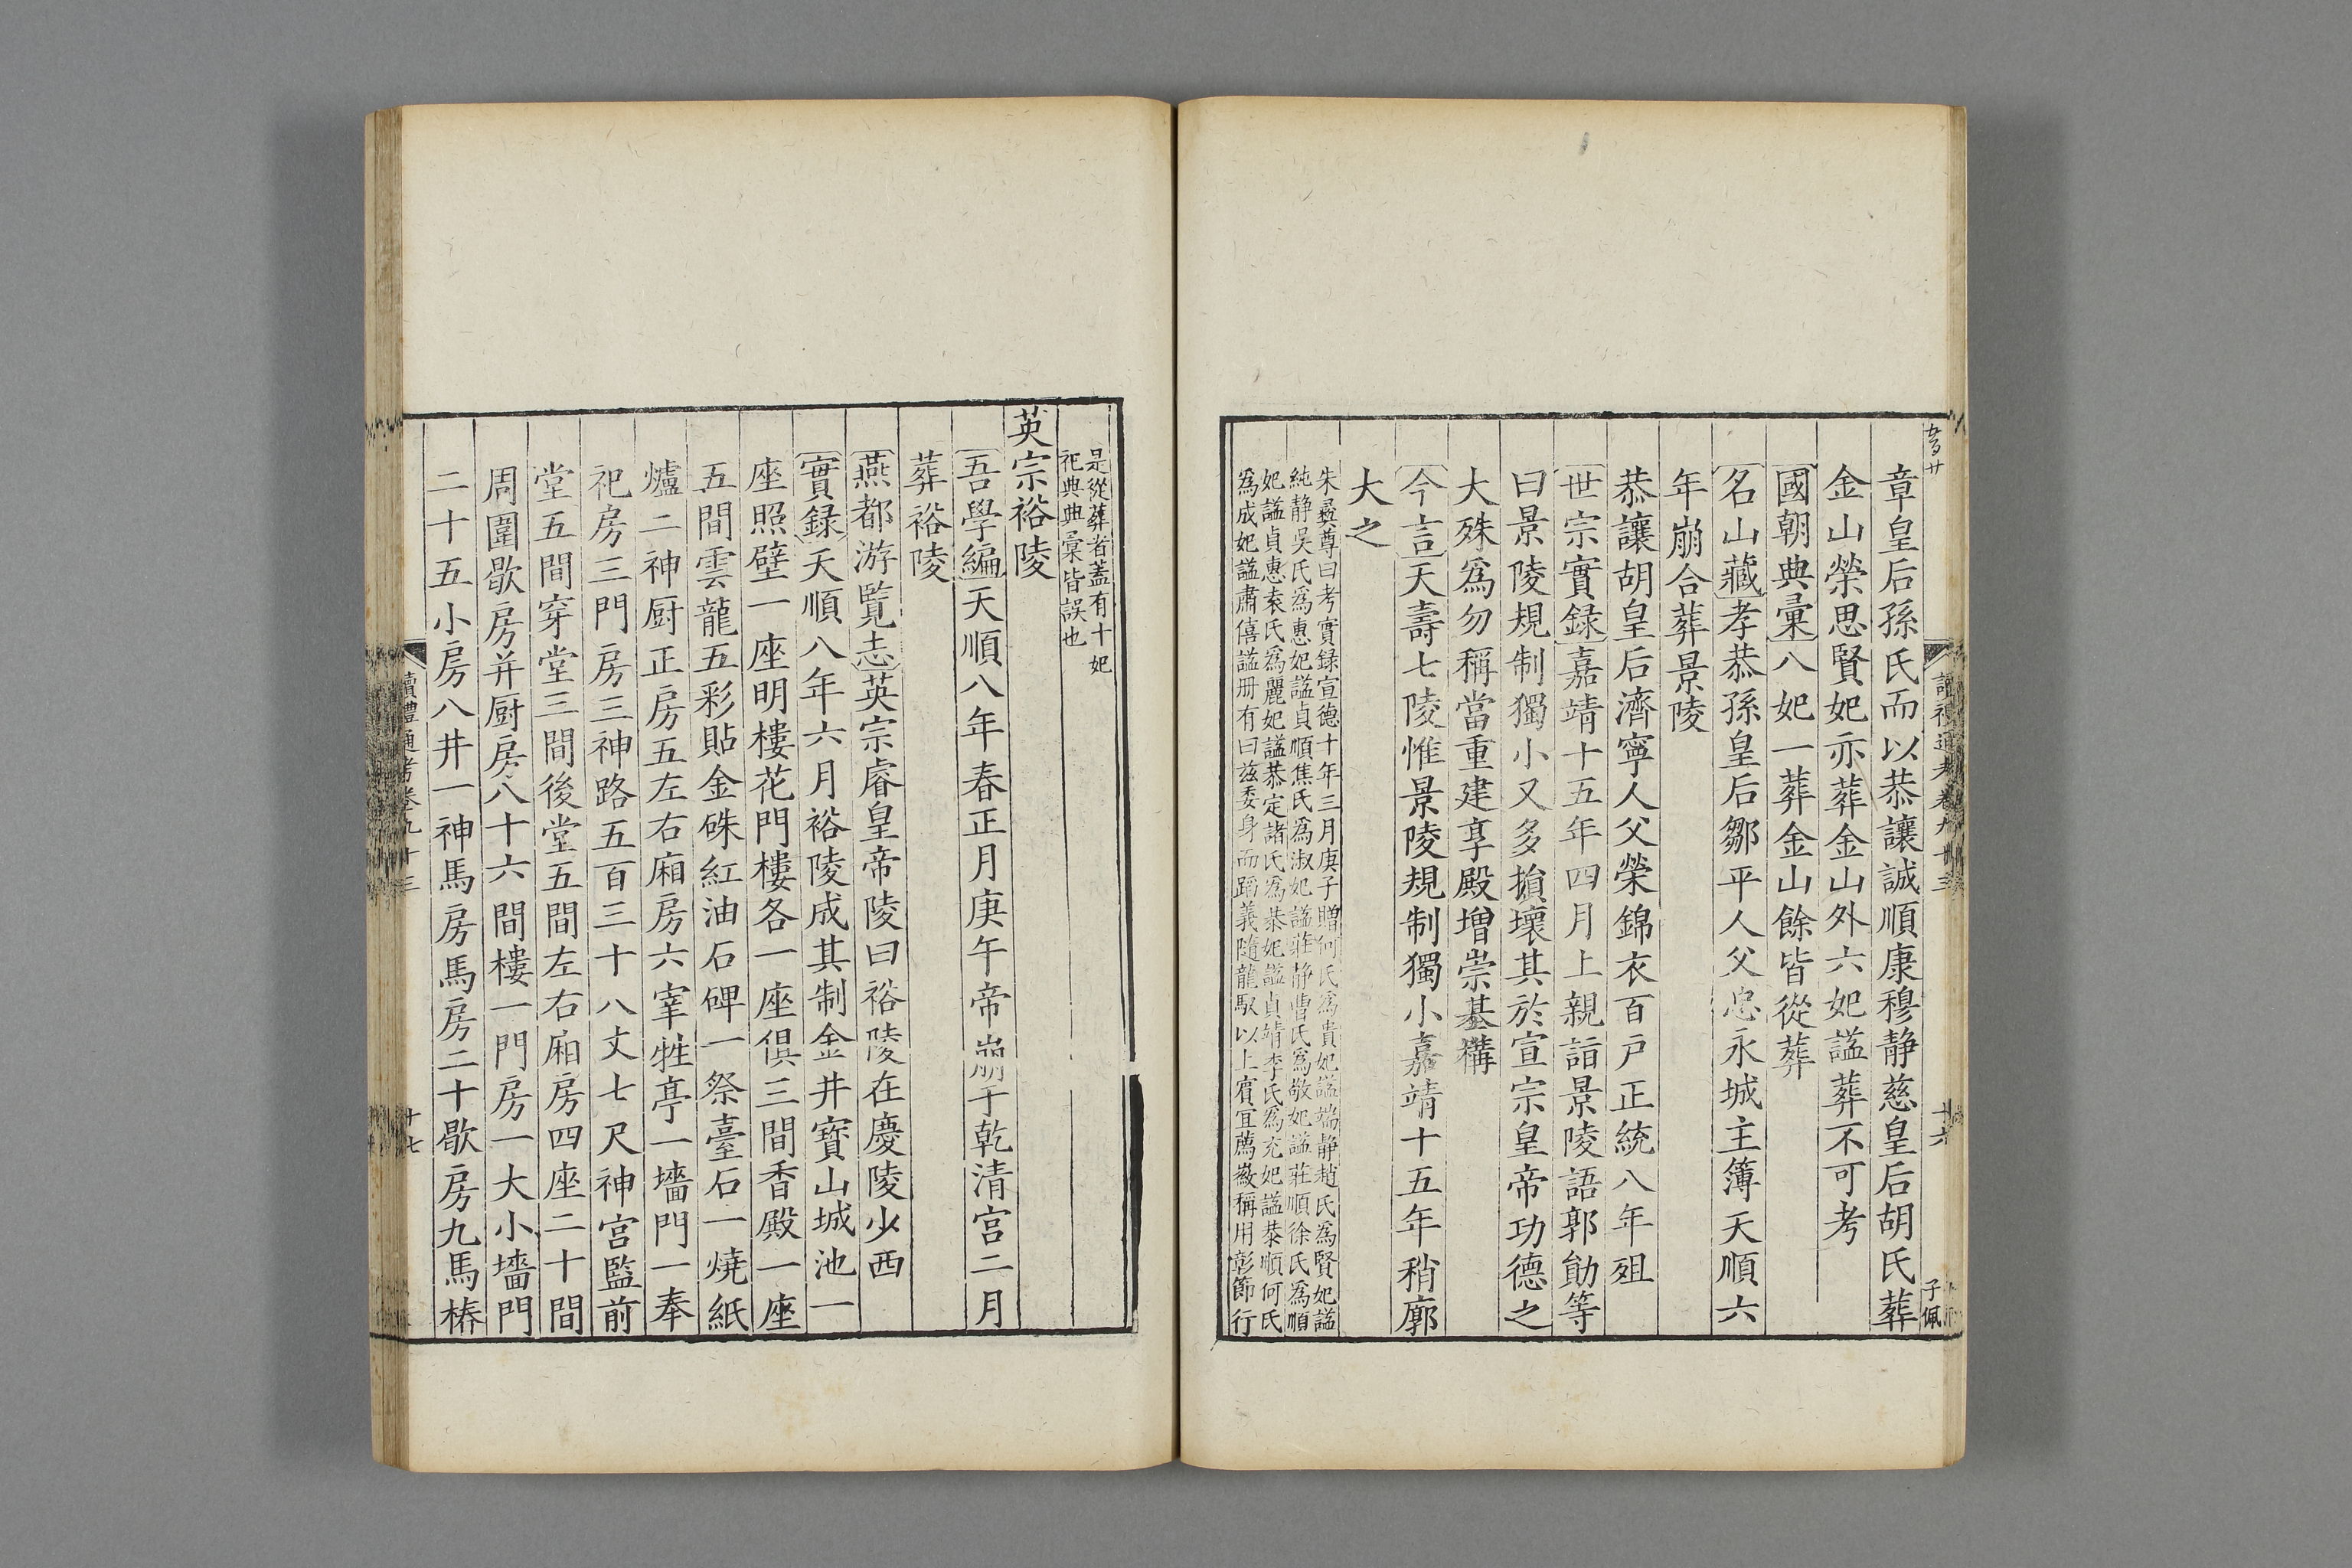 章皇后孫氏而以恭讓誠順康穆静慈皇后胡氏葬
金山榮思賢妃亦葬金山外六妃謚葬不可考
國朝典彙八妃一葬金山餘皆從葬
名山藏孝恭孫皇后鄒平人父忠永城主簿天順六
年崩合葬景陵
恭讓胡皇后濟寧人父榮錦衣百戸正統八年殂
世宗實録嘉靖十五年四月上親詣景陵語郭勛等
曰景陵規制獨小又多損壞其於宣宗皇帝功德之
大殊爲勿稱當重建享殿增崇基構
今言天壽七陵惟景陵規制獨小嘉靖十五年稍廓
大之
朱彞尊曰考實録宣德十年三月庚子贈何氏爲貴妃謚端静趙氏爲賢妃謚
純静吳氏爲惠妃謚貞順焦氏爲淑妃謚莊静曹氏爲敬妃謚莊順徐氏爲順
妃謚貞惠袁氏爲麗妃謚恭定諸氏爲恭妃謚貞靖李氏爲充妃謚恭順何氏
爲成妃謚肅僖謚册有曰兹委身而蹈義隨龍馭以上賓宜薦徽稱用彰節行
讀禮通考卷九十三
十六
子佩
是從葬者蓋有十妃
祀典典彙皆誤也
英宗裕陵
吾學編天順八年春正月庚午帝崩于乾清宫二月
葬裕陵
燕都游覽志英宗睿皇帝陵曰裕陵在慶陵少西
實録天順八年六月裕陵成其制金井寶山城池一
座照壁一座明樓花門樓各一座俱三間香殿一座
五間雲龍五彩貼金硃紅油石碑一祭臺石一燒紙
爐二神厨正房五左右廂房六宰牲亭一墻門一奉
祀房三門房三神路五百三十八丈七尺神宫監前
堂五間穿堂三間後堂五間左右廂房四座二十間
周圍歇房并厨房八十六間樓一門房一大小墻門
二十五小房八井一神馬房馬房二十歇房九馬樁
讀禮通考卷九十三
十七